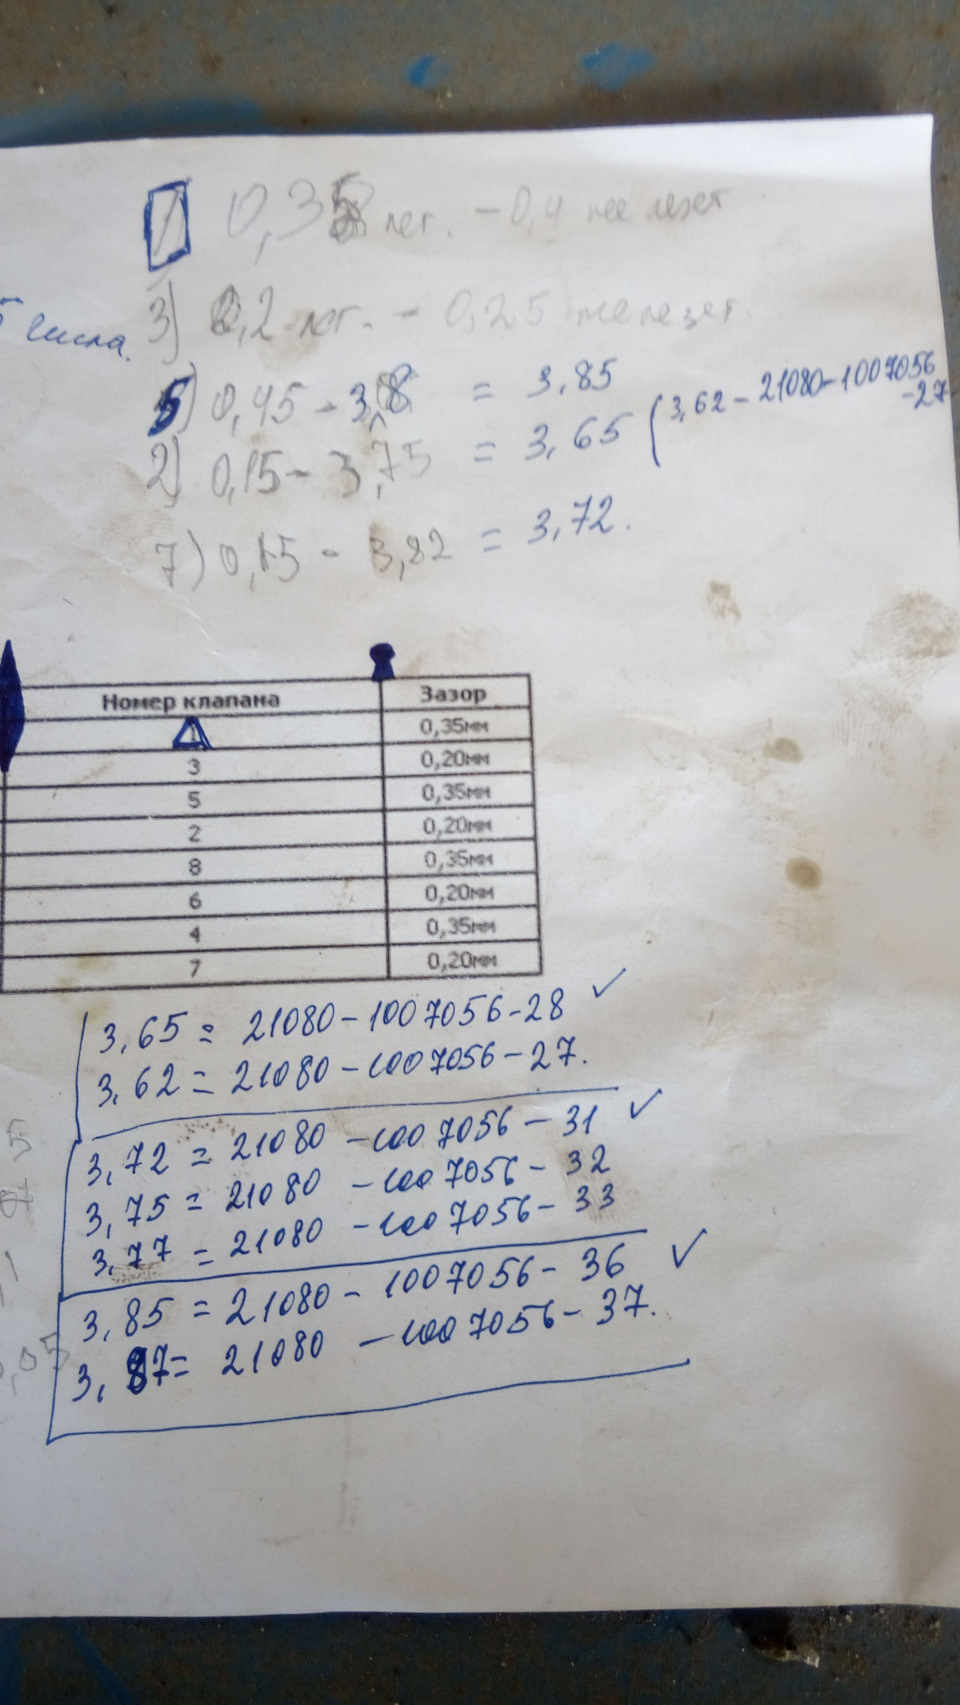 1 0,35 лег. - 0,4 не лезет
числа.
3) 0,2 лег. - 0,25 не лезет
5) 0,45 - 3,8 = 3,85
(3,62 - 21080-1007056
-27
2) 0,15 - 3,75 = 3,65
7) 0,15 - 3,82 = 3,72.
Номер клапана Зазор
1 0,35мм
3 0,20мм
5 0,35мм
2 0,20мм
8 0,35мм
6 0,20мм
4 0,35мм
7 0,20мм
3,65 = 21080-1007056-28 ✓
3,62 = 21080-1007056-27.
3,72 = 21080-1007056-31 ✓
3,75 = 21080-1007056-32
3,77 = 21080-1007056-33
3,85 = 21080-1007056-36 ✓
3,87 = 21080-1007056-37.